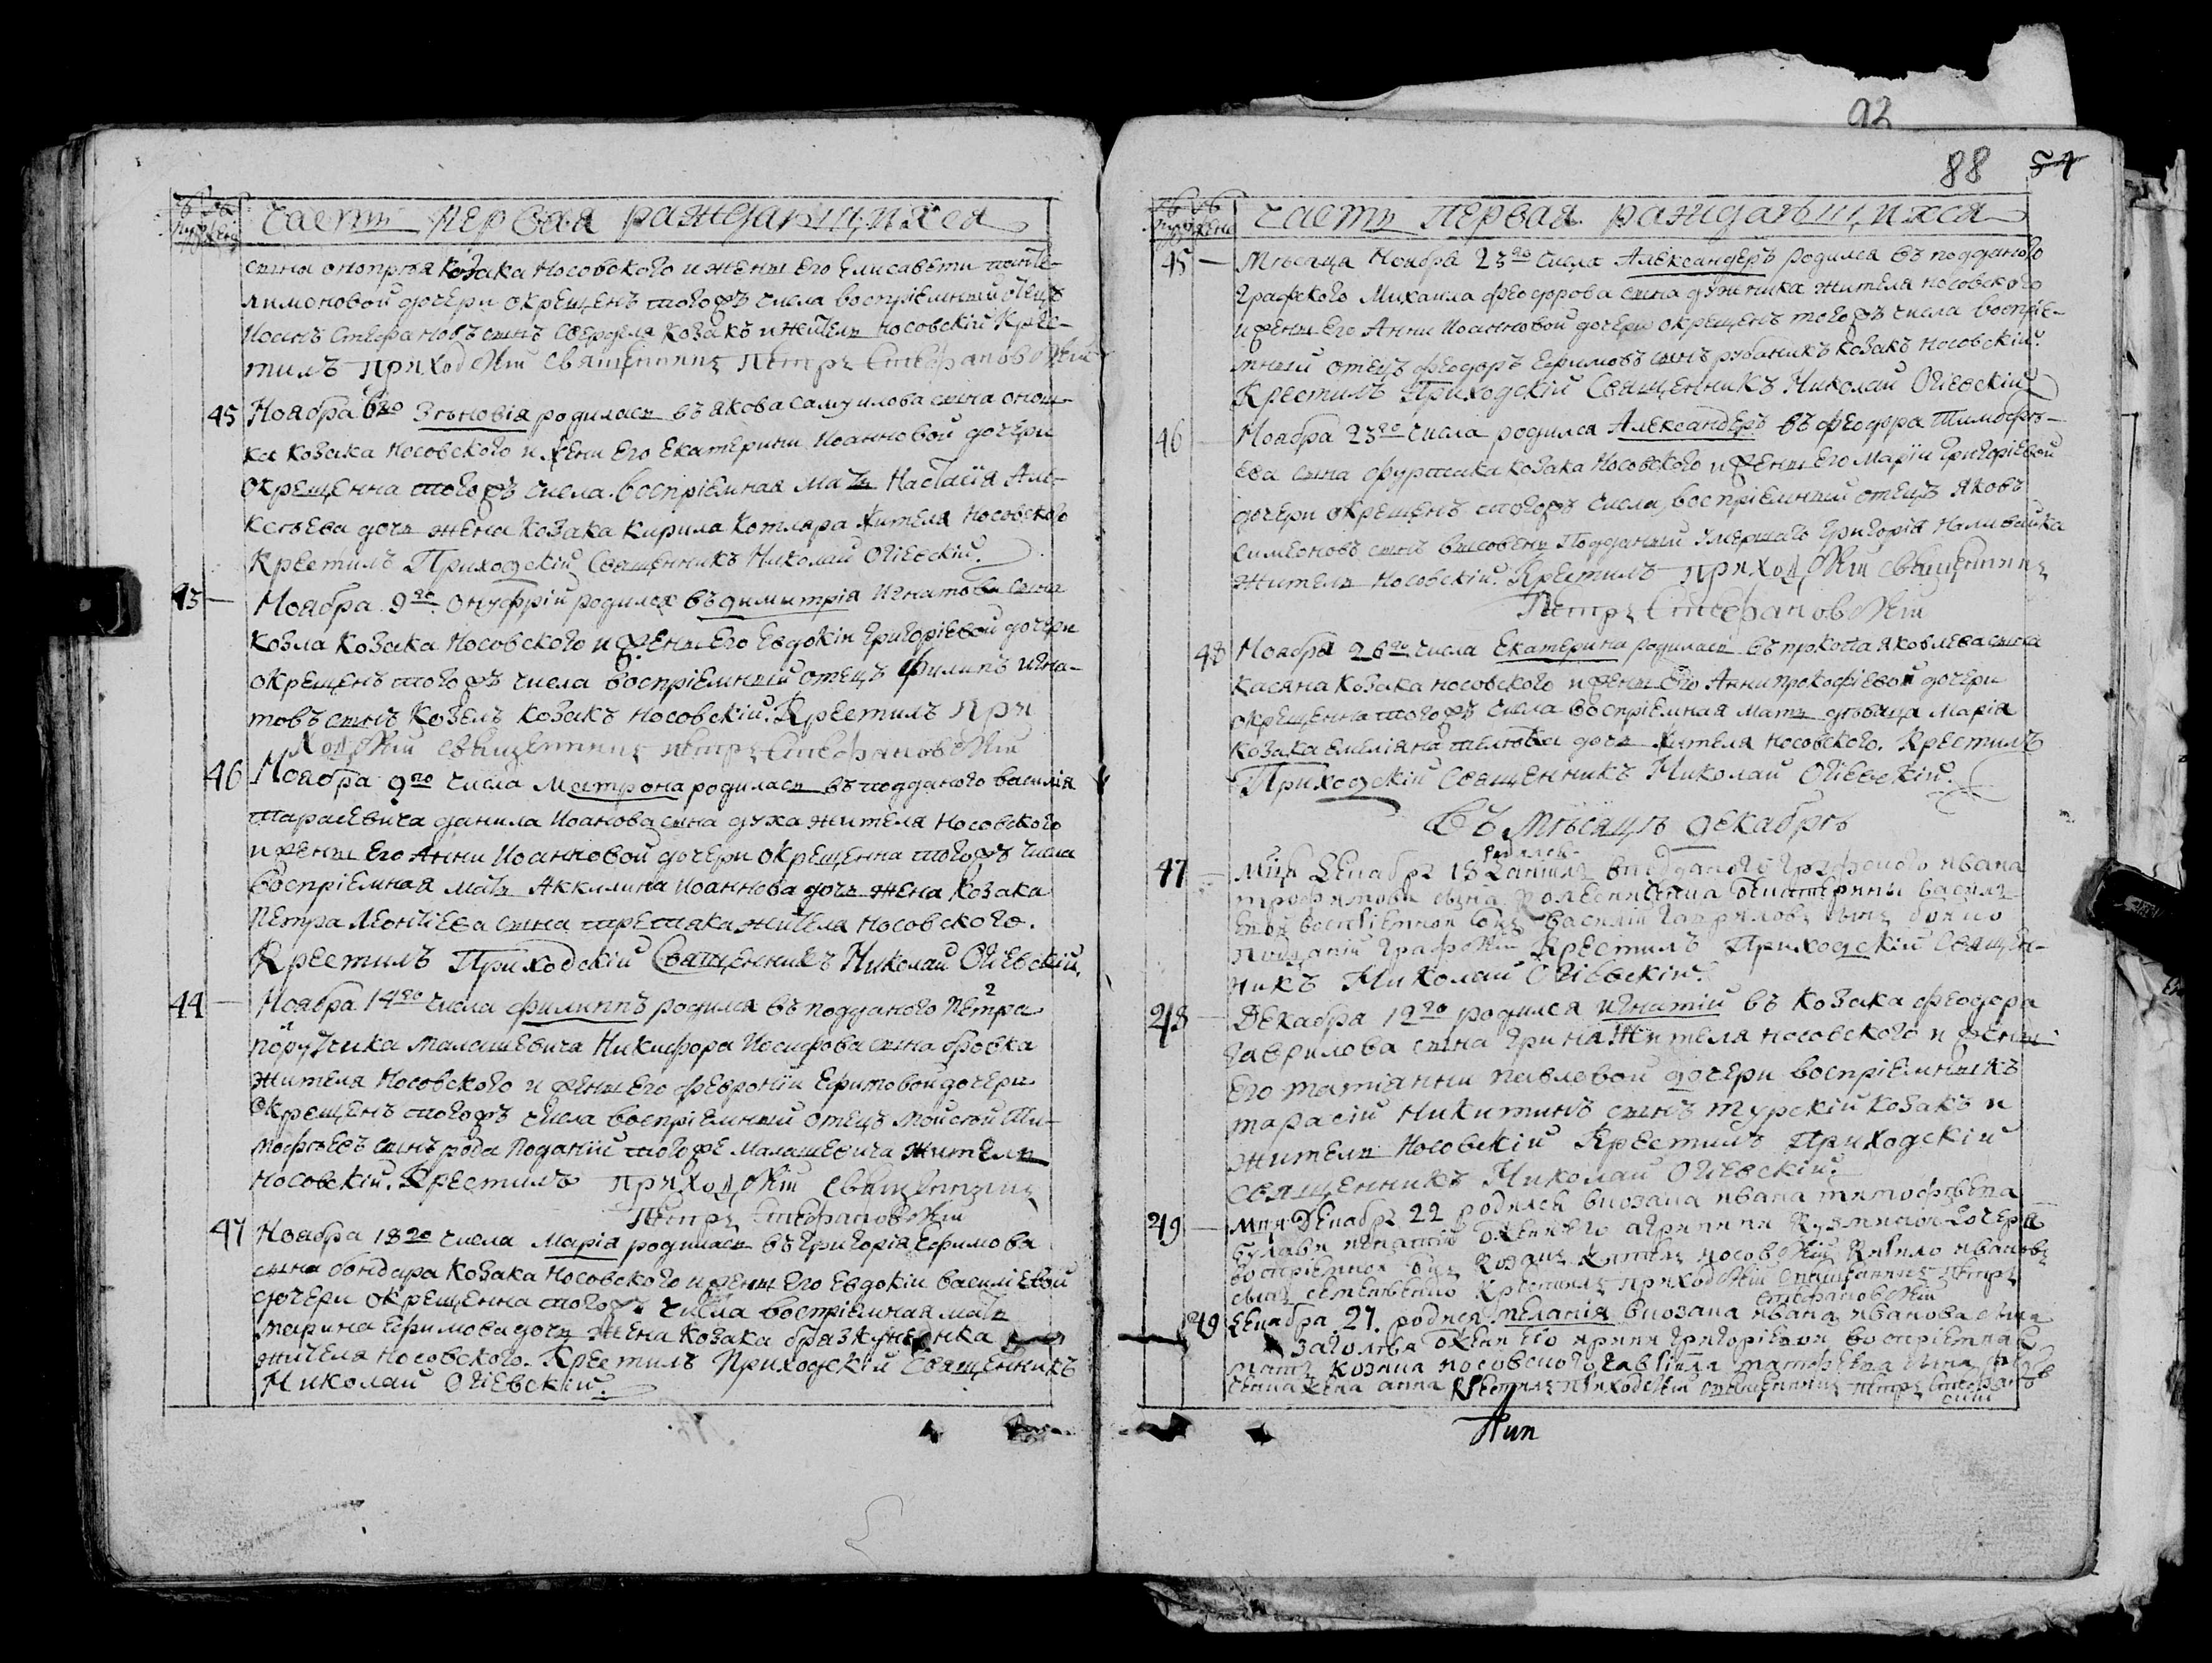 часть первая раждающихся
сына оноприя козака носовского и жены его Елисавети панте-
лимоновой дочери окрещенъ тогожъ числа воспрiемный отецъ
Иоанъ Стефановъ сынъ козакъ и житель носовскiй Крес-
тилъ приходскiй священникъ Петръ Стефановскiй
45 Ноября 6го Зѣновiя родилась въ якова самуилова сына онош-
ка козака носовского и жени его Екатерини Иоанновой дочери
окрещенна тогожъ числа воспрiемная мать Настасiя Але-
ксѣева дочь жена козака кирила котляра жителя носовского
Крестилъ Приходскiй Священникъ Николай Огiевскiй
43 Ноября 9го Онуфрiй родился въ димитрiя Игнатова сына
козла козака носовского и жены его Евдокiи григорiевой дочери
окрещенъ тогожъ числа воспрiемный отецъ Филипъ игна-
товъ сынъ козелъ козакъ носовскiй. Крестилъ При
ходскiй священникъ Петръ Стефановскiй
46 Ноября 9го числа Матрона родилась въ подданого василiя
тарасевича данила Иоанова сына духа жителя носовского
и жены его Анни Иоанновой дочери окрещенна тогожъ числа
воспрiемная мать Акклина Иоаннова дочь жена козака
Петра Леонтiева сына третяка жителя носовского.
Крестилъ Приходскiй Священникъ Николай Огiевскiй.
44 Ноября 14го числа филиппъ родился въ подданого Петра
поручика малашевича Никифора Иосифова сына бовка
жителя носовского и жены его февронiи Ефимовой дочери
окрещенъ тогожъ числа воспрiемный отецъ мойсей Ти-
мофѣевъ сынъ рода поданiй тогоже малашевича житель
носовскiй. Крестилъ приходскiй священникъ
Петръ Стефановскiй
47 Ноября 18го числа Марiя родилась въ григорiя Ефимова
сына бондара козака носовского и жены его Евдокiи василiевой
дочери окрещенна тогожъ числа воспрiемная мать
марина Ефимова дочь жена козака
жителя носовского. Крестилъ Приходскiй Священникъ
Николай Огiевскiй.
92
88 54
часть первая раждающихся
45 Мѣсяца Ноября 23го числа Александеръ родился въ подданого
графского Михаила феодорова сына дужника жителя носовского
и жены его Анни Иоанновой дочери окрещенъ тогожъ числа воспрiе-
мный отецъ феодоръ Ефимовъ сынъ рибаникъ козакъ носовскiй.
Крестилъ Приходскiй Священникъ Николай Огiевскiй
46 Ноября 23го числа родился Александеръ въ феодора Тимофѣ-
ева сына козака носовского и жены его Марiи григорiевой
дочери окрещенъ тогожъ числа воспрiемный отецъ яковъ
симеоновъ сынъ Подданый умершаго григорiя Наливайка
житель носовскiй. Крестилъ приходскiй священникъ
Петръ Стефановскiй
48 Ноября 26го числа Екатерина родилась въ прокопа яковлева сына
касяна козака носовского и жены его Анни прокофiевой дочери
окрещенна тогожъ числа воспрiемная мать дѣвица марiя
козака емелiяна дочь жителя носовского. Крестилъ
Приходскiй Священникъ Николай Огiевскiй.
Въ Мѣсяцѣ декабрѣ
родился
47 Мца Декабря 18 в подданого графского ивана
трофимова сына василь-
воспрiемной василiй гаврилов сынъ
подданiй графскiй Крестилъ Приходскiй Священ-
никъ Николай Огiевскiй.
48 Декабря 19го родился игнатiй въ козака феодора
гаврилова сына гриня жителя носовского и жены
его татiянни павловой дочери воспрiемникъ
тарасiй Никитинъ сынъ турскiй козакъ и
житель носовскiй Крестилъ Приходскiй
священникъ Николай Огiевскiй.
49 Мця Декабря 22 родился в козака ивана тимофѣева
булави игнатiй жени его агрипини кузминой дочери
воспрiемной козакъ житель носовскiй кирило ивановъ
сынъ Крестилъ приходскiй священникъ Петръ
Стефановскiй
49 Декабря 27. родися мелания в козака ивана иванова сина
жени его ирини григорiевой воспрiемная
мать козака носовского гаврiила сина
жена анна Крестилъ приходскiй священникъ Петръ Стефанов
скiй
Нип